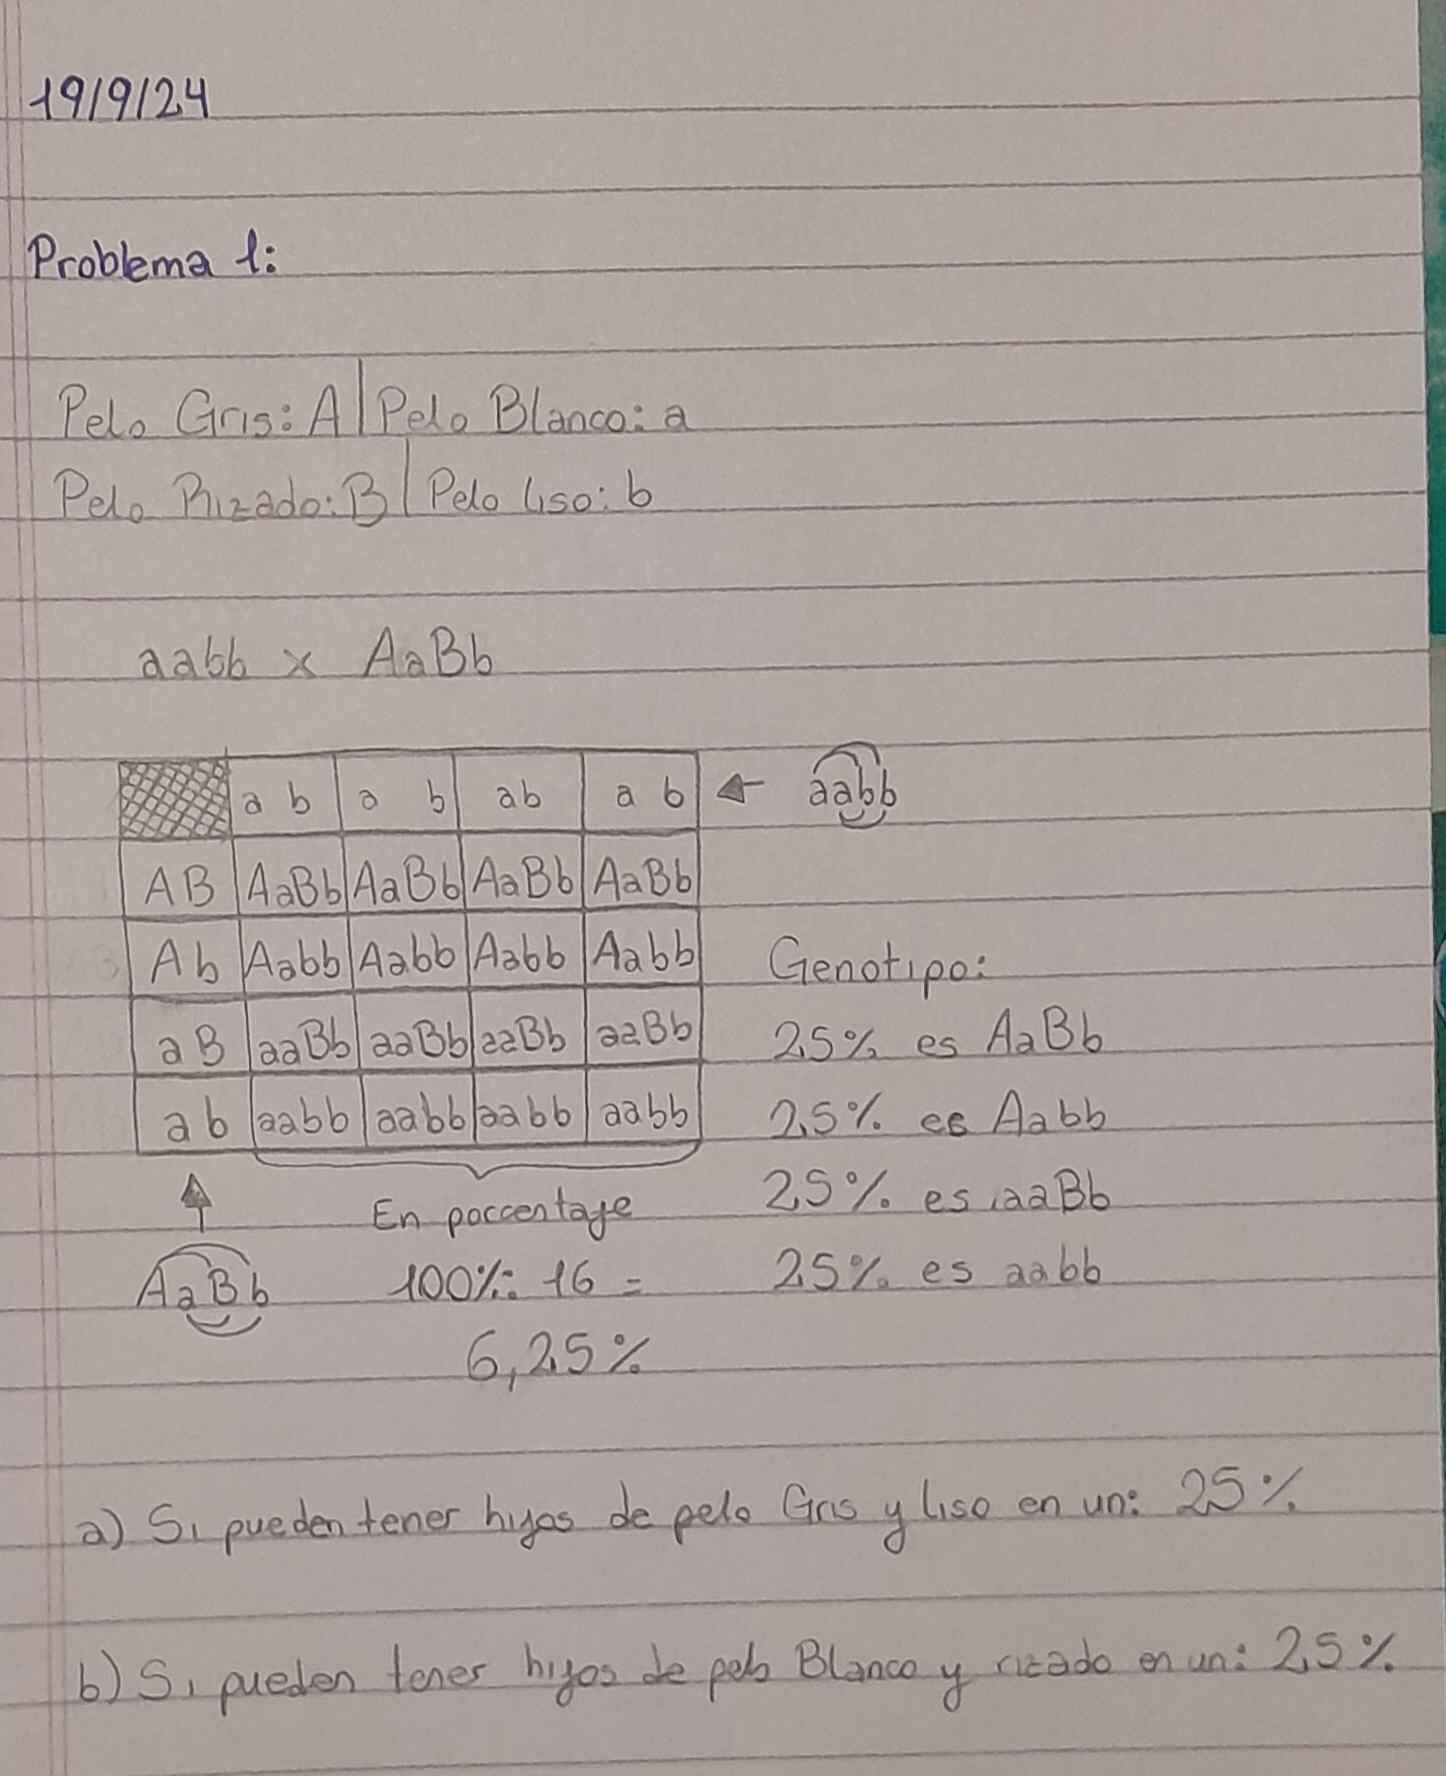 19/9/24
Problema 1:
Pelo Gris: A | Pelo Blanco: a
Pelo Rizado: B | Pelo liso: b
aabb x AaBb
a b | a b | ab | a b ← aabb
AB | AaBb | AaBb | AaBb | AaBb
Ab | Aabb | Aabb | Aabb | Aabb
Genotipo:
aB | aaBb | aaBb | aaBb | aaBb
25% es AaBb
ab | aabb | aabb | aabb | aabb
25% es Aabb
En porcentaje
25% es aaBb
AaBb
100% : 16 =
25% es aabb
6,25%
a) Si pueden tener hijos de pelo Gris y liso en un: 25%
b) Si pueden tener hijos de pelo Blanco y rizado en un: 25%